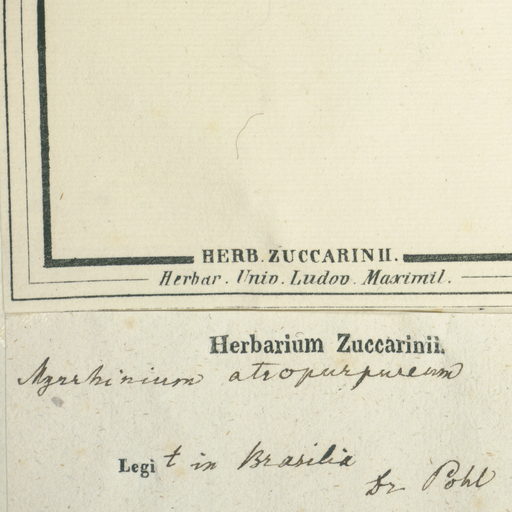 HERB. ZUCCARINII.
Herbar. Univ. Ludov. Maximil.
Herbarium Zuccarinii.
Myrrhinium atropurpureum
Legit in Brasilia
Dr Pohl